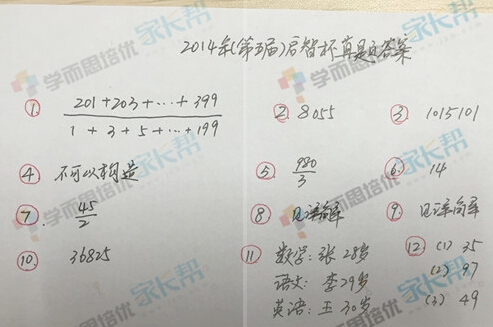 2014年(第五届)启智杯真题答案
① 201+203+…+399
1+3+5+…+199
② 8055
③ 1015101
④ 不可以构造
⑤ 980/3
⑥ 14
⑦. 45/2
⑧ 见详解
⑨ 见详解
⑩ 36825
⑪ 数学:张 28岁
语文:李 29岁
英语:王 30岁
⑫ (1) 35
(2) 97
(3) 49
学而思培优 家长帮